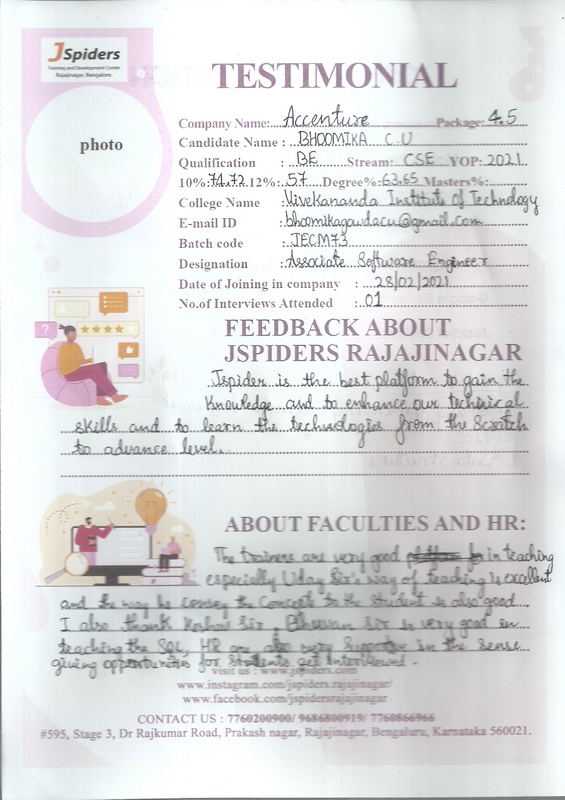 JSpiders
Training and Development Center
Rajajinagar, Bangalore.
TESTIMONIAL
photo
Company Name: Accenture Package: 4.5
Candidate Name : BHOOMIKA C.U
Qualification : BE Stream: CSE YOP: 2021
10%: 74.72 12%: 57 Degree%: 63.65 Masters%:
College Name Vivekananda Institute of Technology
E-mail ID : bhoomikagowdacu@gmail.com
Batch code : JECM73
Designation : Associate Software Engineer
Date of Joining in company : 28/02/2021
No.of Interviews Attended : 01
FEEDBACK ABOUT
JSPIDERS RAJAJINAGAR
Jspider is the best platform to gain the
knowledge and to enhance our technical
skills and to learn the technologies from the Scratch
to advance level.
ABOUT FACULTIES AND HR:
The trainers are very good in teaching
especially Uday Sir's way of teaching is excellent
and the way he convey the Concepts to the student is also good.
I also thank Keshav Sir, Bhuvan Sir is very good in
teaching the SQL, HR are also very Supportive in the sense
giving opportunities for students get Interviewed.
visit us : www.jspiders.com
www.instagram.com/jspiders.rajajinagar/
www.facebook.com/jspiders.rajajinagar/
CONTACT US : 7760200900/ 9686800919/ 7760866966
#595, Stage 3, Dr Rajkumar Road, Prakash nagar, Rajajinagar, Bengaluru, Karnataka 560021.